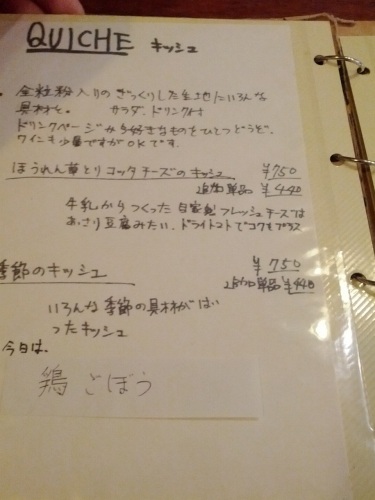 QUICHE キッシュ
・全粒粉入りのざっくりした生地にいろんな
具材を。 サラダ、ドリンク付
ドリンクページから好きなものをひとつどうぞ。
ワインも少量ですがOKです。
ほうれん草とリコッタチーズのキッシュ ¥750
追加単品 ¥440
牛乳からつくった自家製フレッシュチーズは
あさり豆腐みたい、ドライトマトでコクをプラス
季節のキッシュ ¥750
追加単品 ¥440
いろんな季節の具材がはい
ったキッシュ
今日は、
鶏ごぼう